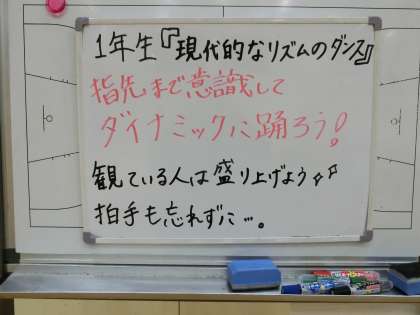 1年生『現代的なリズムのダンス』
指先まで意識して
ダイナミックに踊ろう!
観ている人は盛り上げよう♪♪
拍手も忘れずに…。